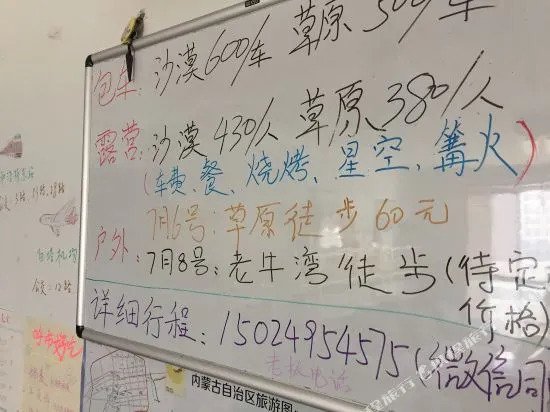 包车: 沙漠600/车 草原500/车
露营: 沙漠430/人 草原380/人
(车费、餐、烧烤、星空、篝火)
户外: 7月6号: 草原徒步60元
7月8号: 老牛湾徒步(待定
价格)
详细行程: 15024954575(微信同
老板电话
内蒙古自治区旅游图